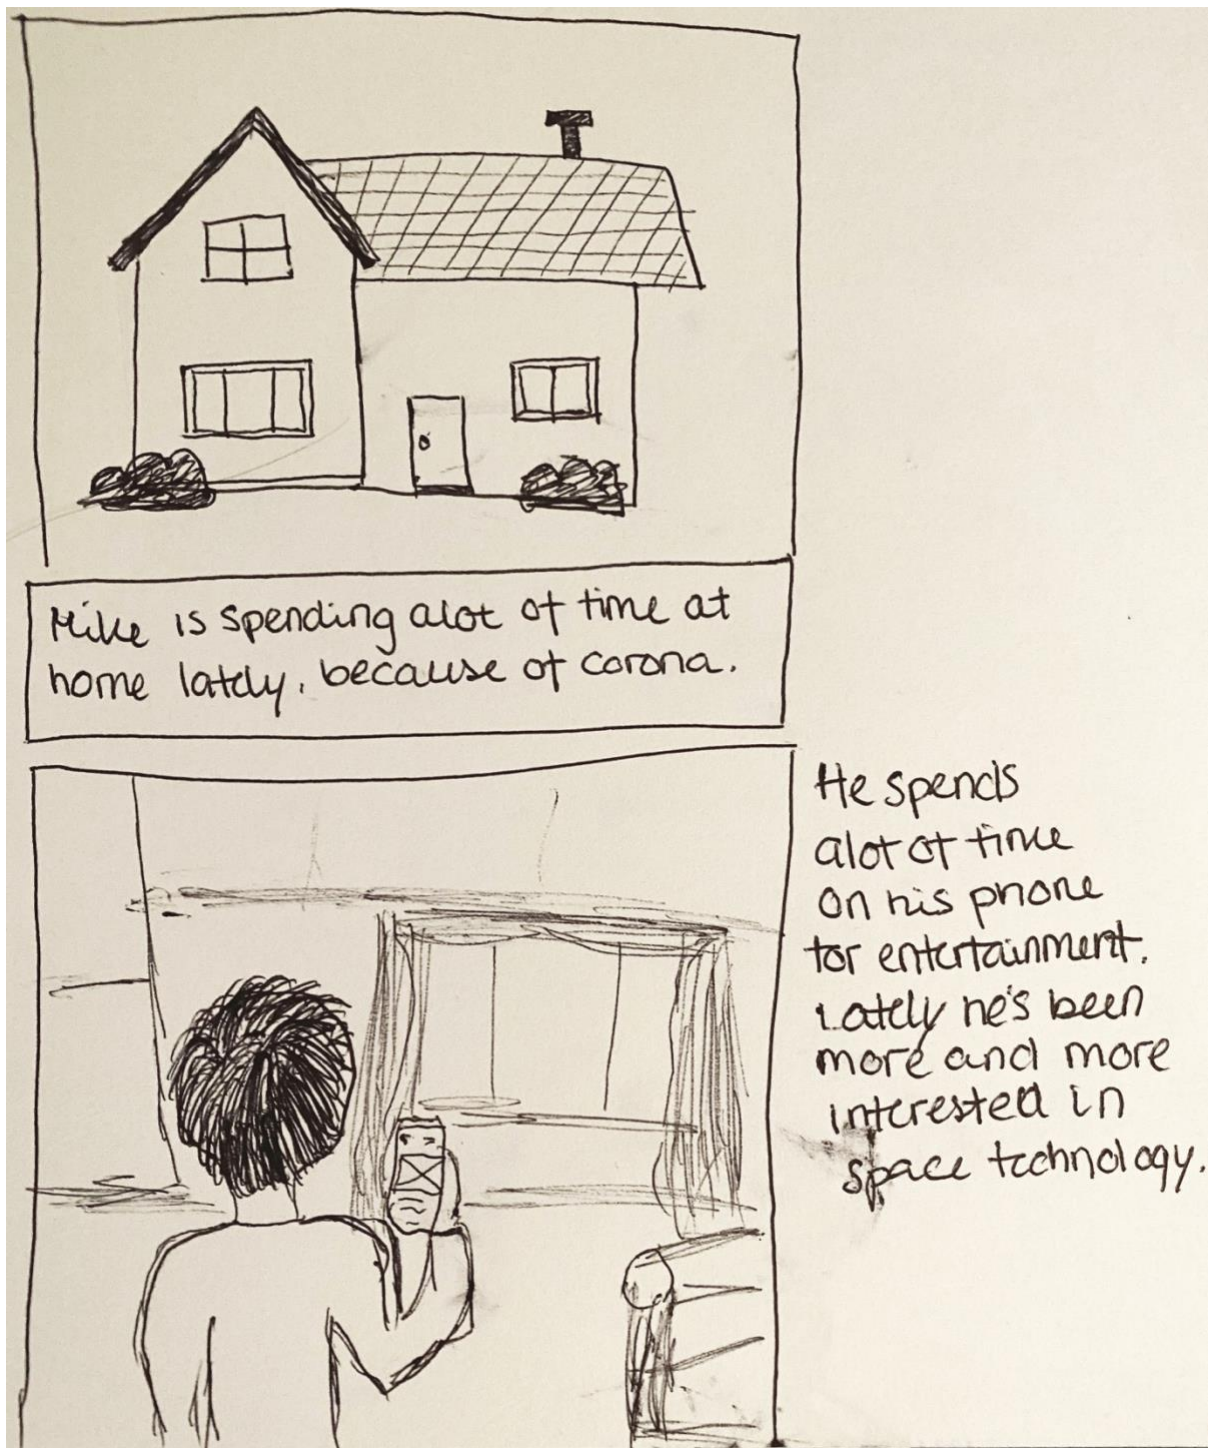 Mike is spending alot of time at
home lately, because of corona.
He spends
alot of time
on his phone
for entertainment.
Lately he's been
more and more
interested in
space technology.